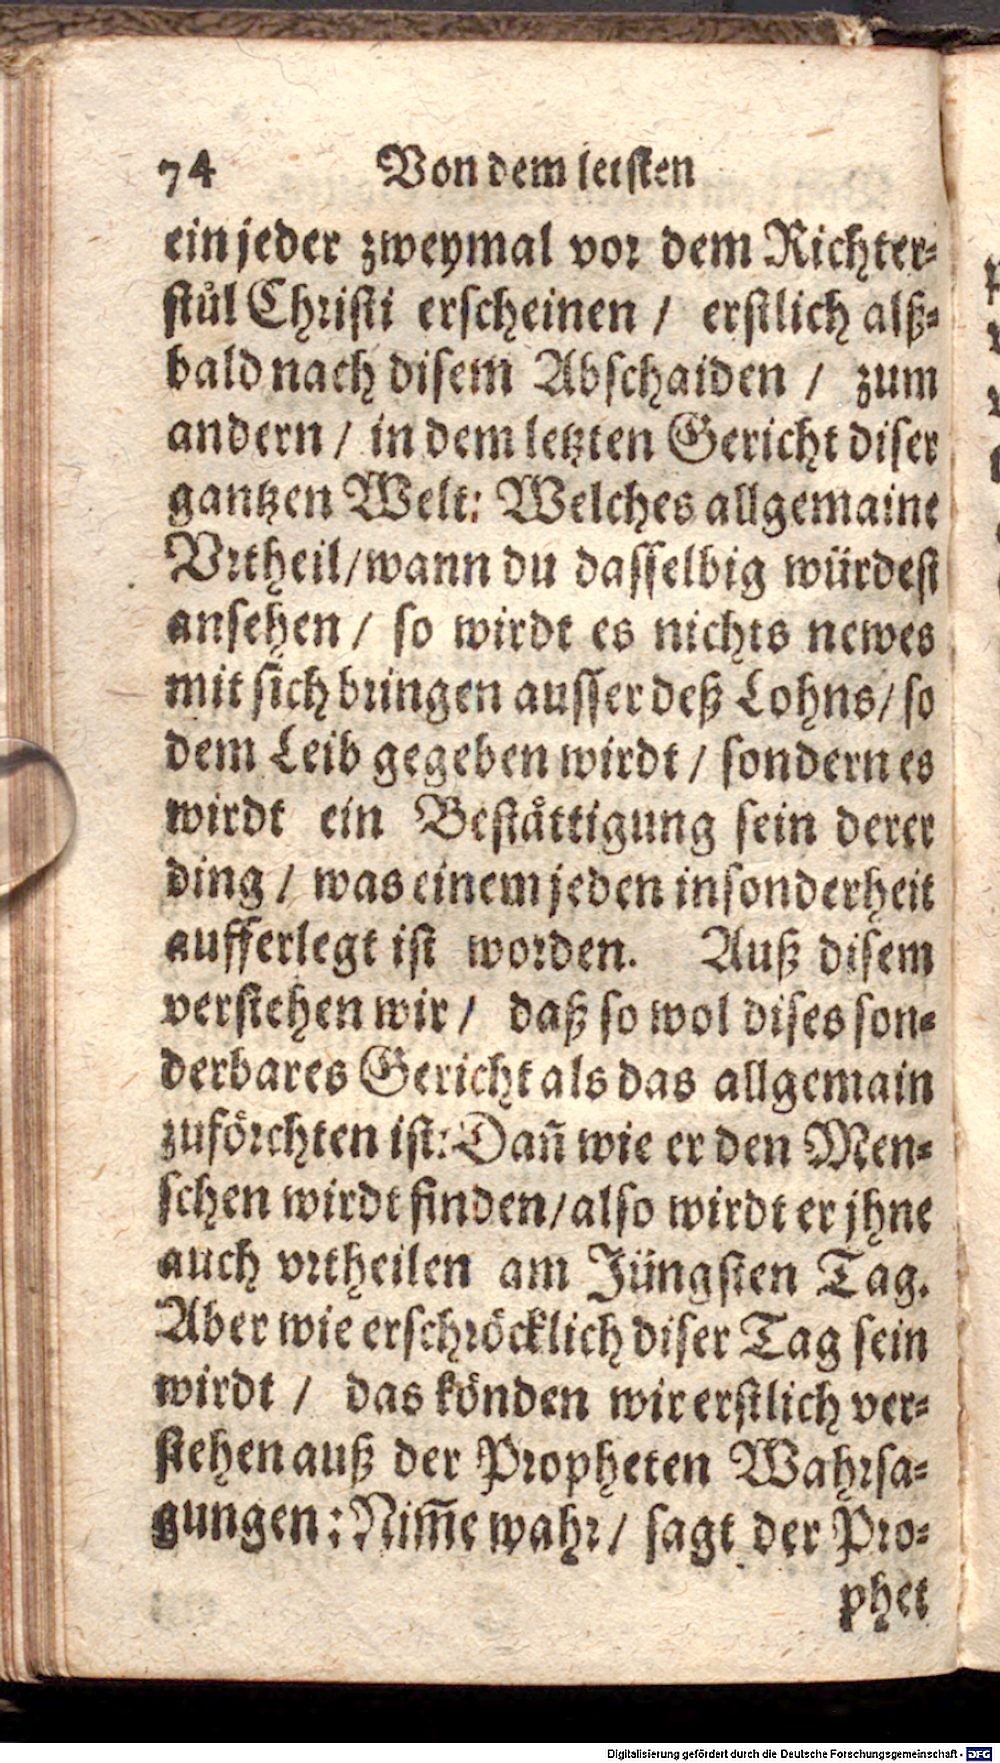 74 Von dem letsten
ein jeder zweymal vor dem Richter-
stůl Christi erscheinen / erstlich alß-
bald nach disem Abschaiden / zum
andern / in dem letzten Gericht diser
gantzen Welt: Welches allgemaine
Vrtheil / wann du dasselbig würdest
ansehen / so wirdt es nichts newes
mit sich bringen ausser deß Lohns / so
dem Leib gegeben wirdt / sondern es
wirdt ein Bestättigung sein derer
ding / was einem jeden insonderheit
aufferlegt ist worden. Auß disem
verstehen wir / daß so wol dises son-
derbares Gericht als das allgemain
zuförchten ist: Dañ wie er den Men-
schen wirdt finden / also wirdt er jhne
auch vrtheilen am Jüngsten Tag.
Aber wie erschröcklich diser Tag sein
wirdt / das könden wir erstlich ver-
stehen auß der Propheten Wahrsa-
gungen: Nim̃e wahr / sagt der Pro-
phet
Digitalisierung gefördert durch die Deutsche Forschungsgemeinschaft - DFG